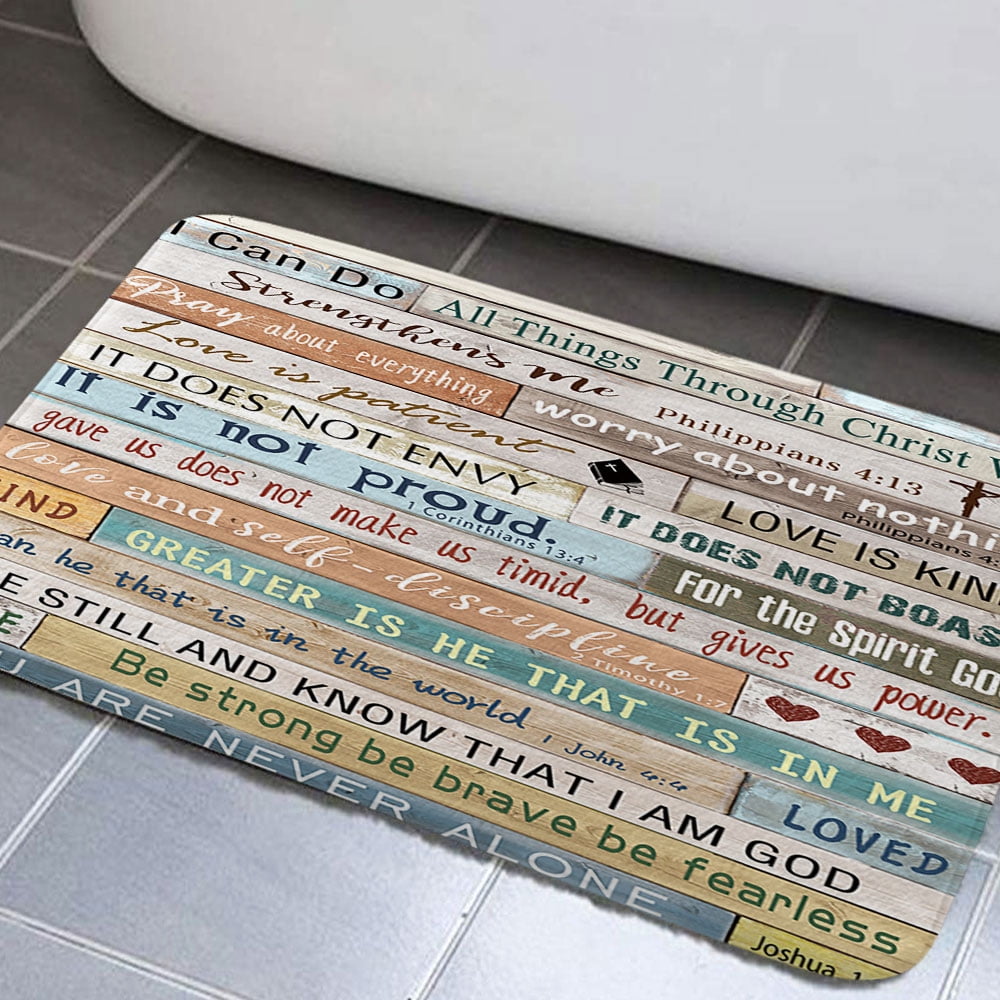 I Can Do
All Things Through Christ W
Strengthens Me Philippians 4:13
Pray about everything
worry about nothi
Philippians 4:
Love is patient
LOVE IS KIN
IT DOES NOT ENVY
IT DOES NOT BOAS
It is not proud.
1 Corinthians 13:4
For the Spirit Go
gave us does not make us timid, but gives us power.
love and self-discipline
2 Timothy 1:7
IND
GREATER IS HE THAT IS IN ME
an he that is in the world 1 John 4:4
LOVED
E STILL AND KNOW THAT I AM GOD
E
Be strong be brave be fearless
U ARE NEVER ALONE
Joshua 1